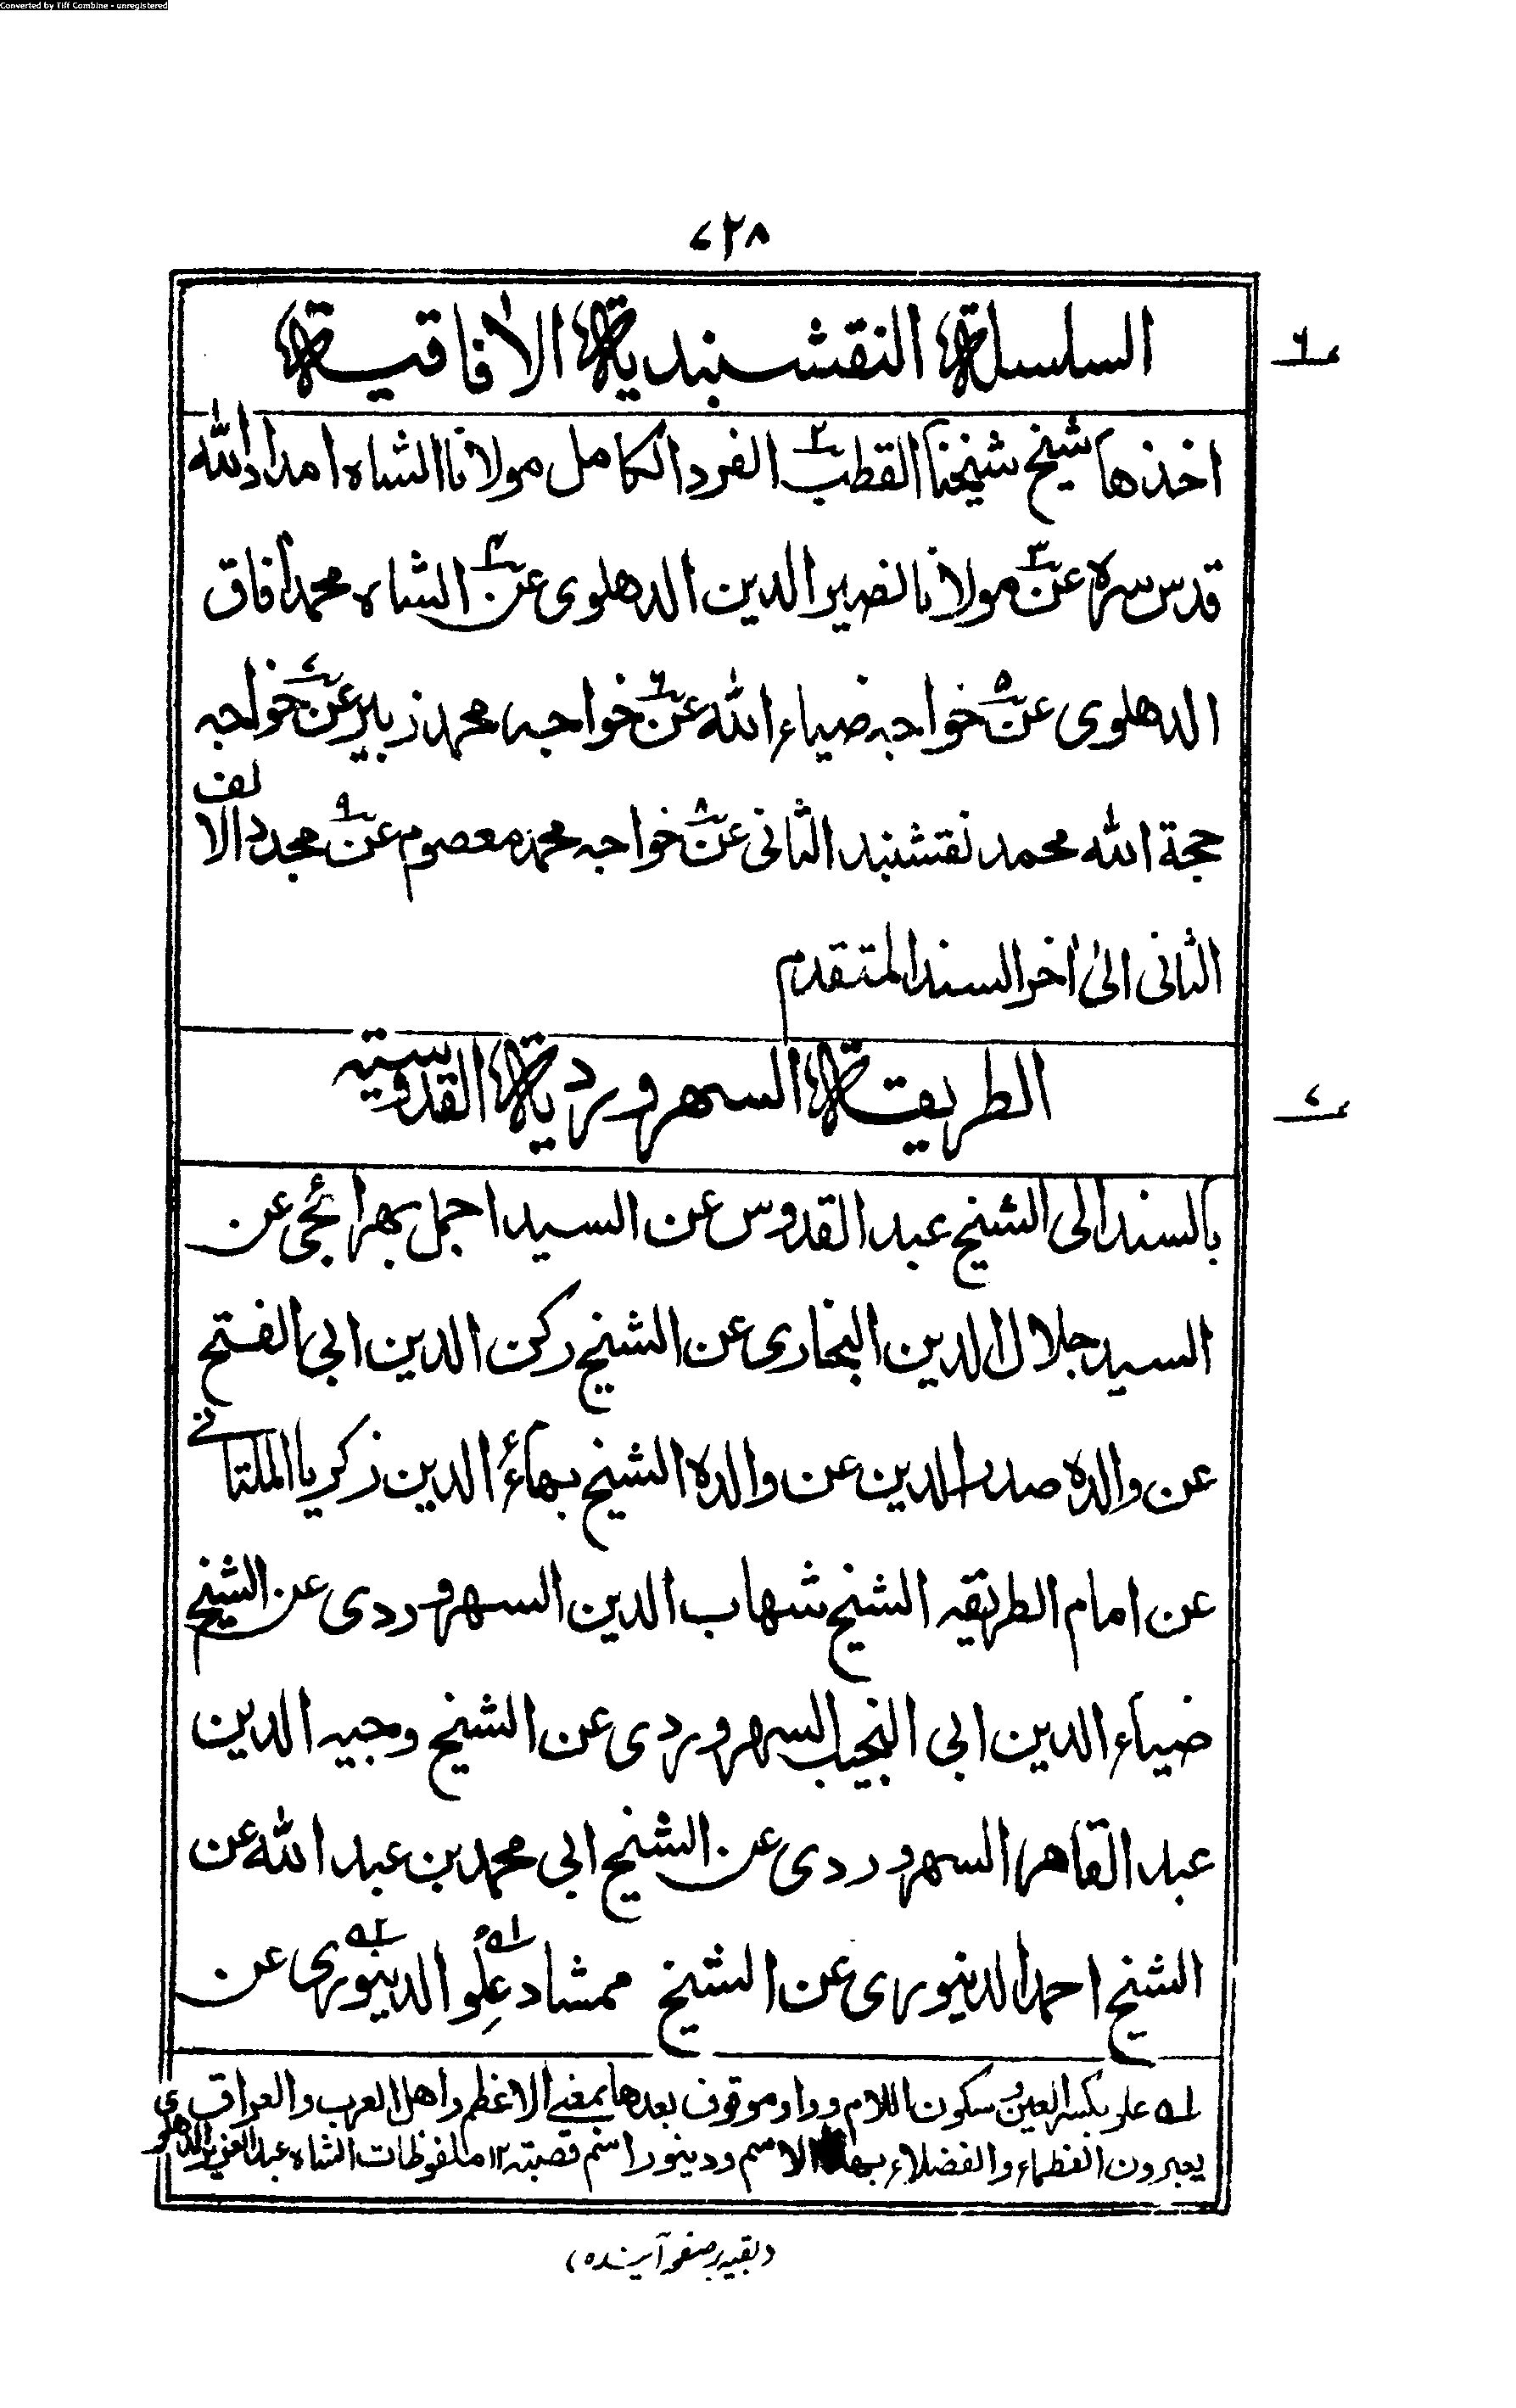 Converted by Tiff Combine - unregistered
۷۲۸
السلسلة النقشبندية الآفاقية
۶
اخذها شيخ شيخنا القطب۲ الفرد الكامل مولانا الشاه امداد الله
قدس سره عن۳ مولانا نصير الدين الدهلوى عن۴ الشاه محمد آفاق
الدهلوى عن۵ خواجه ضياء الله عن۶ خواجه محمد زبير عن۷ خواجه
حجة الله محمد نقشبند الثانى عن۸ خواجه محمد معصوم عن۹ مجدد الالف
الثانى الىٰ اٰخر السند المتقدم
الطريقة السهروردية القدوسيه
۷
بالسند الى الشيخ عبد القدوس عن السيد اجمل بهرائجى عن
السيد جلال الدين البخارى عن الشيخ ركن الدين ابى الفتح
عن والده صدر الدين عن والده الشيخ بهاء الدين زكريا الملتانے
عن امام الطريقه الشيخ شهاب الدين السهروردى عن الشيخ
ضياء الدين ابى النجيب السهروردى عن الشيخ وجيه الدين
عبد القاهر السهروردى عن الشيخ ابى محمد بن عبد الله عن
الشيخ احمد الدينورى عن الشيخ ممشاد عِلو۱ه الدينورى۲ه عن
۱ه علو بكسر العين و سكون اللام و واو موقوف بعدها بمعنى الاعظم و اهل العرب و العراق
يعبرون العظماء و الفضلاء بهذا الاسم و دينور اسم قصبته ۱۲ ملفوظات الشاه عبد العزيز الدهلوى
(بقيه بر صفحه آينده)